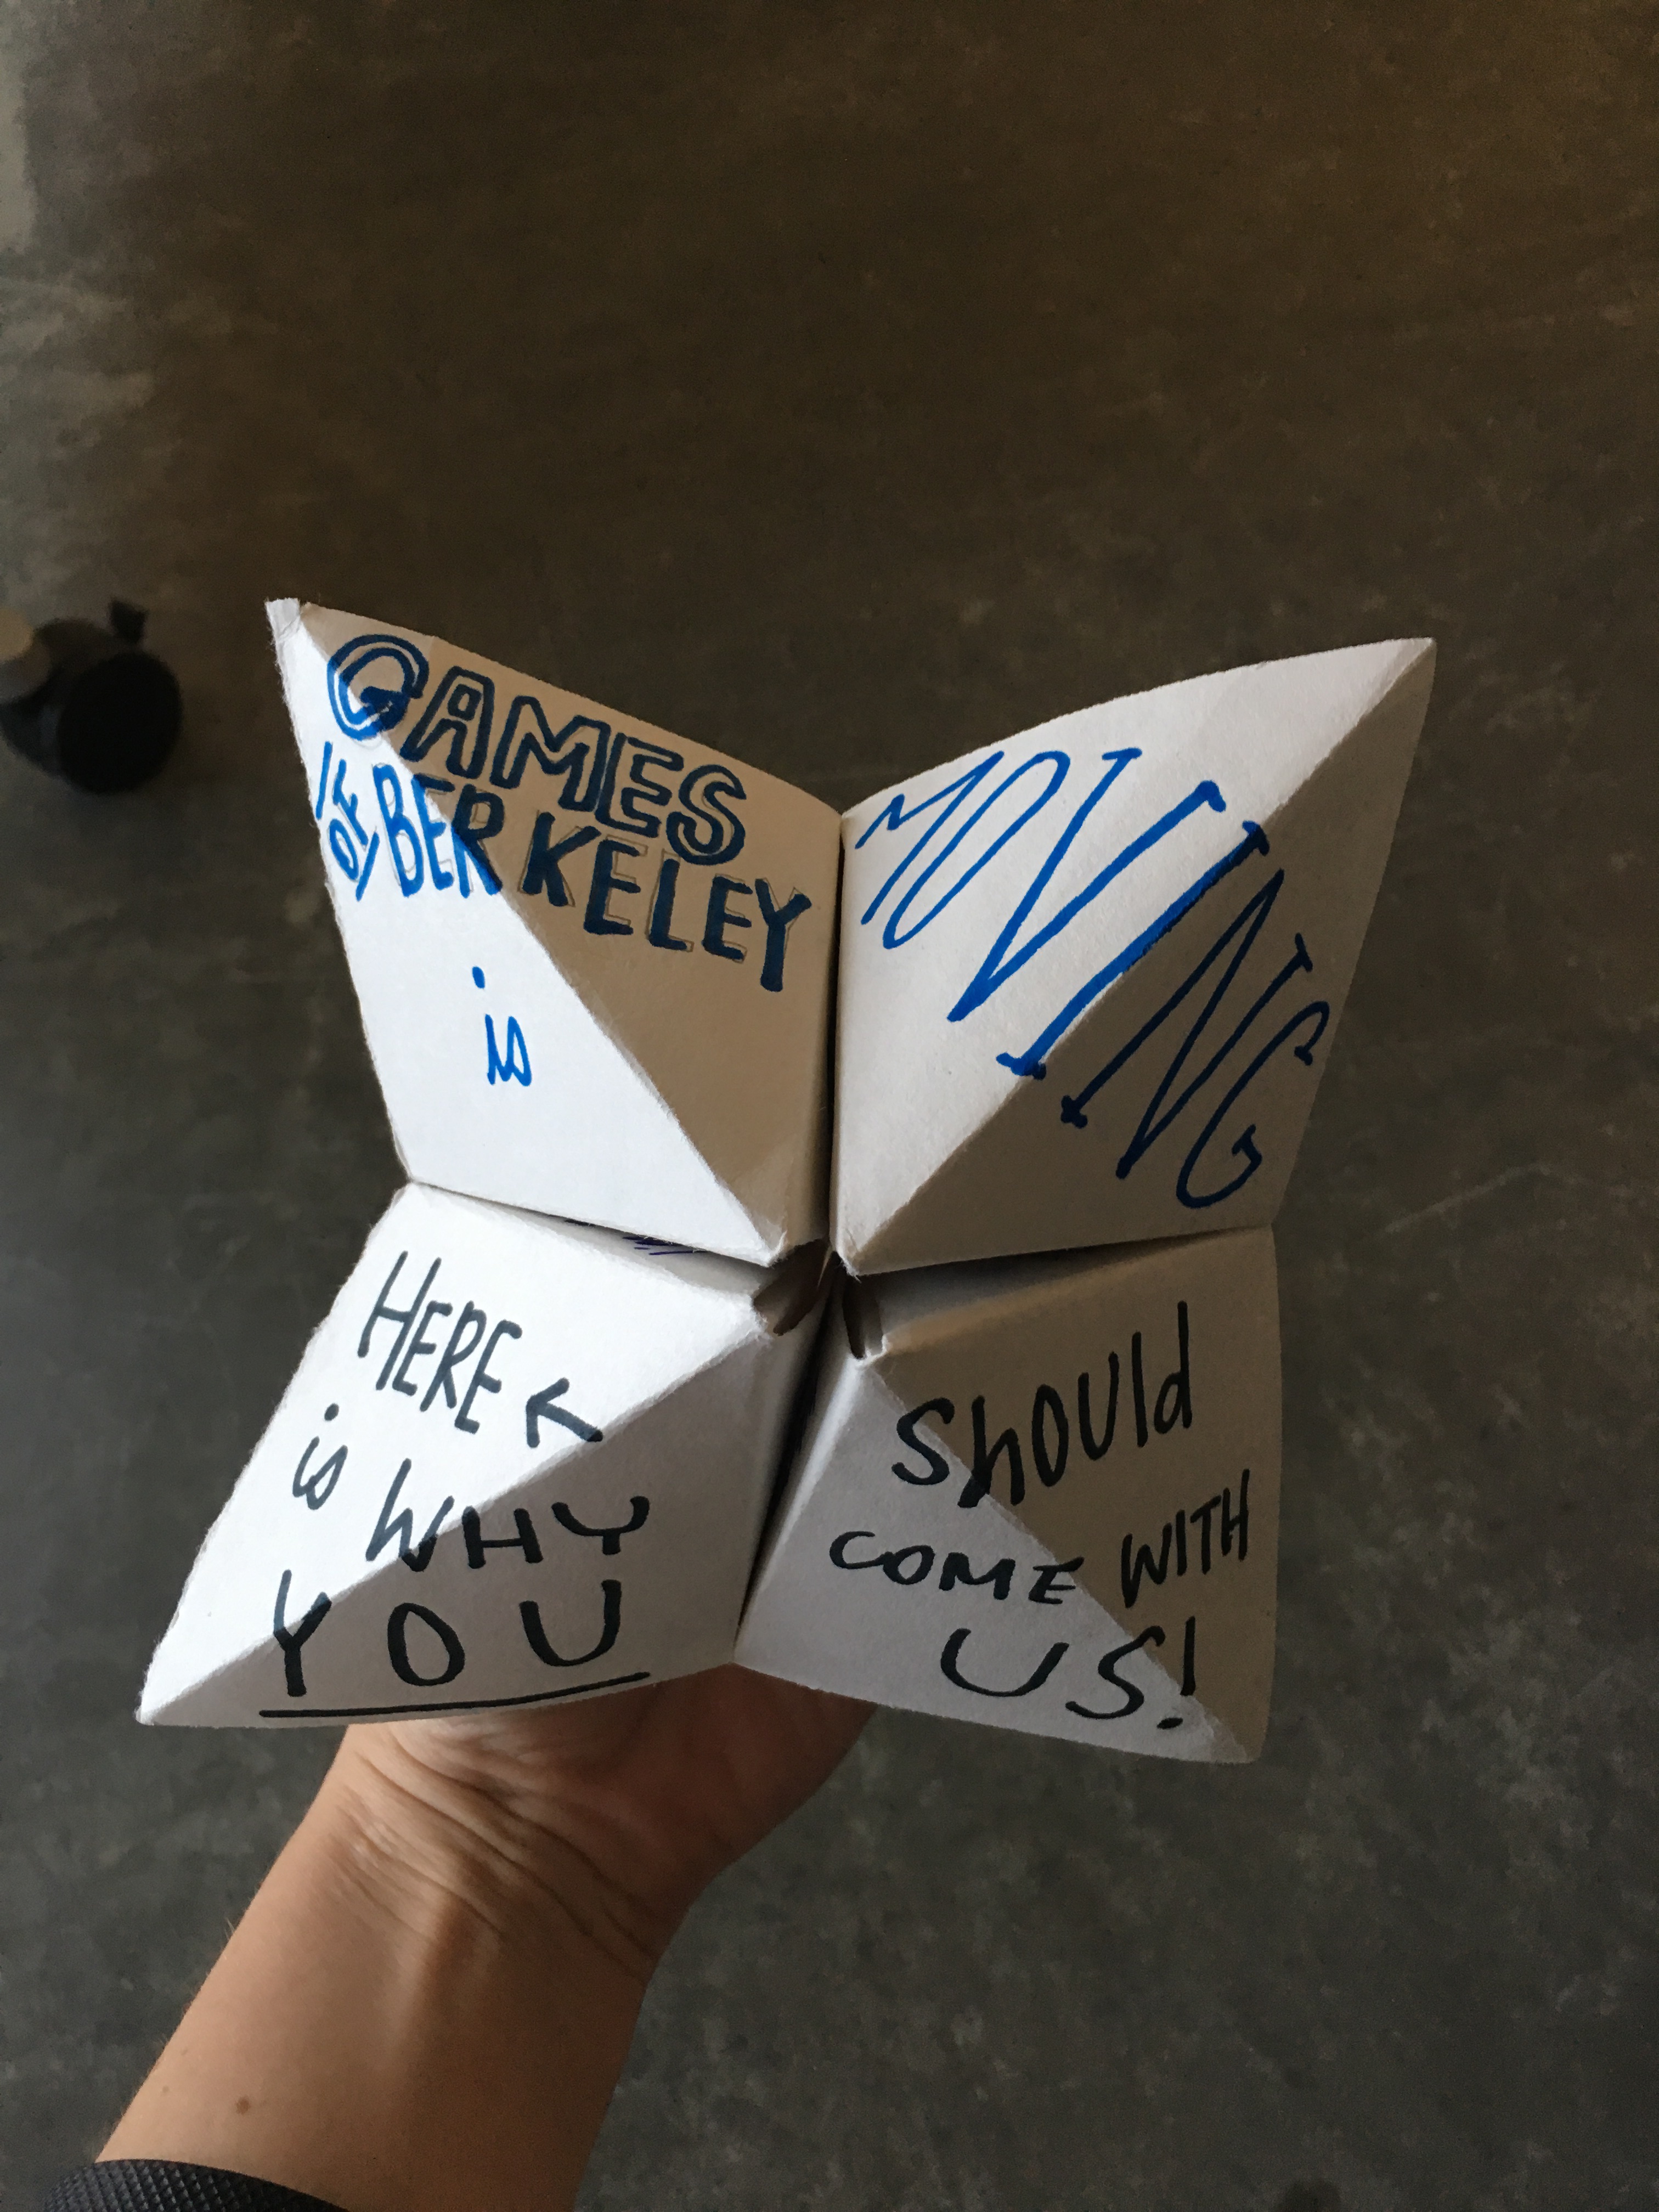 GAMES
/OF/ BERKELEY
is
MOVING
HERE ←
is WHY
YOU
Should
COME WITH
US!